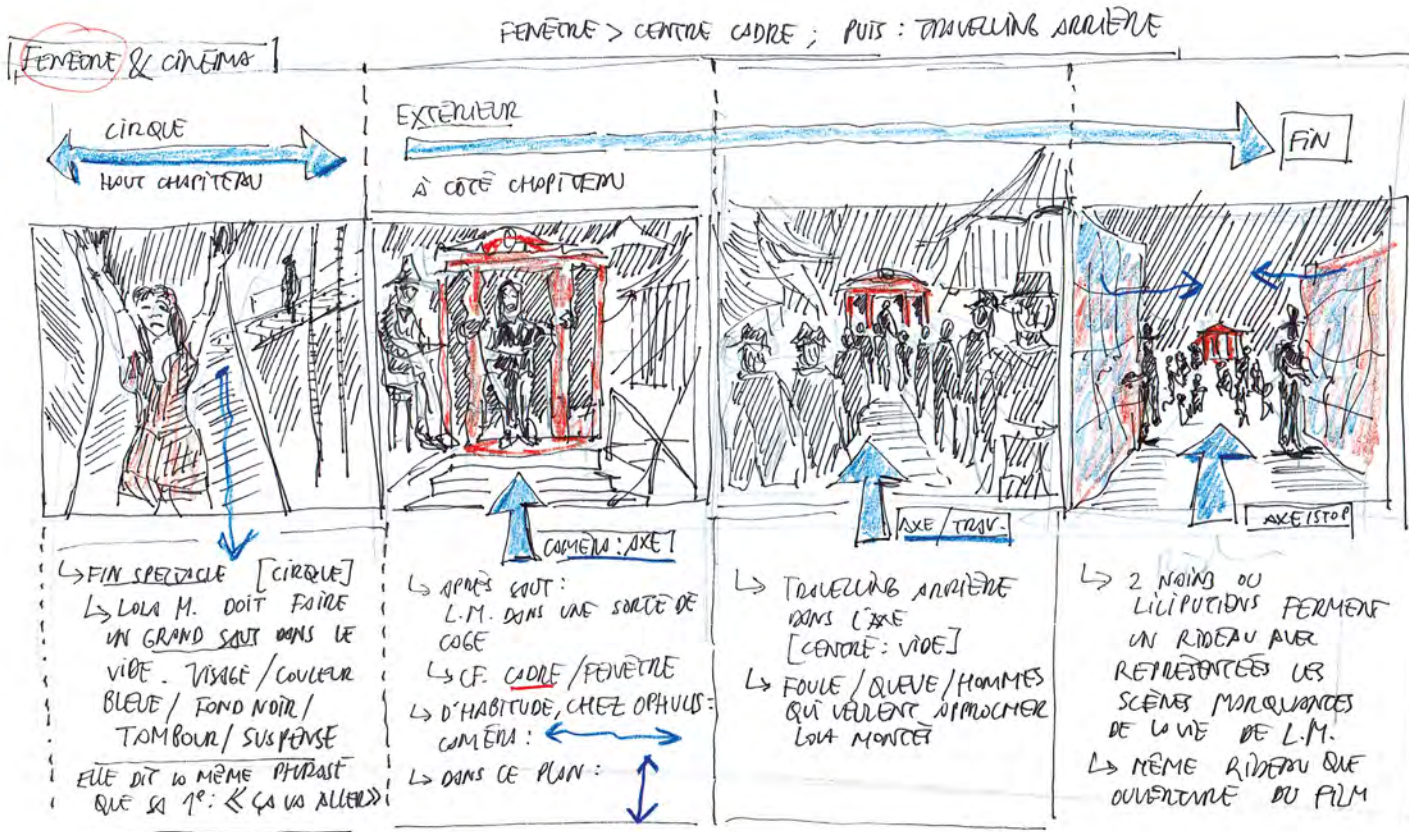 FENÊTRE > CENTRE CADRE ; PUIS : TRAVELLING ARRIÈRE
FENÊTRE & CINÉMA
CIRQUE
HAUT CHAPITEAU
EXTÉRIEUR
À CÔTÉ CHAPITEAU
FIN
CAMÉRA : AXE
AXE / TRAV.
AXE / STOP
↳ FIN SPECTACLE [CIRQUE]
↳ LOLA M. DOIT FAIRE
UN GRAND SAUT DANS LE
VIDE. VISAGE / COULEUR
BLEUE / FOND NOIR /
TAMBOUR / SUSPENSE
ELLE DIT LA MÊME PHRASE
QUE SA 1e : « ÇA VA ALLER »
↳ APRÈS SAUT :
L.M. DANS UNE SORTE DE
CAGE
↳ CF. CADRE / FENÊTRE
↳ D'HABITUDE, CHEZ OPHULS :
CAMÉRA :
↳ DANS CE PLAN :
↳ TRAVELLING ARRIÈRE
DANS L'AXE
[CENTRE : VIDE]
↳ FOULE / QUEUE / HOMMES
QUI VEULENT APPROCHER
LOLA MONTÈS
↳ 2 NAINS OU
LILIPUTIENS FERMENT
UN RIDEAU AVEC
REPRÉSENTÉES LES
SCÈNES MARQUANTES
DE LA VIE DE L.M.
↳ MÊME RIDEAU QUE
OUVERTURE DU FILM